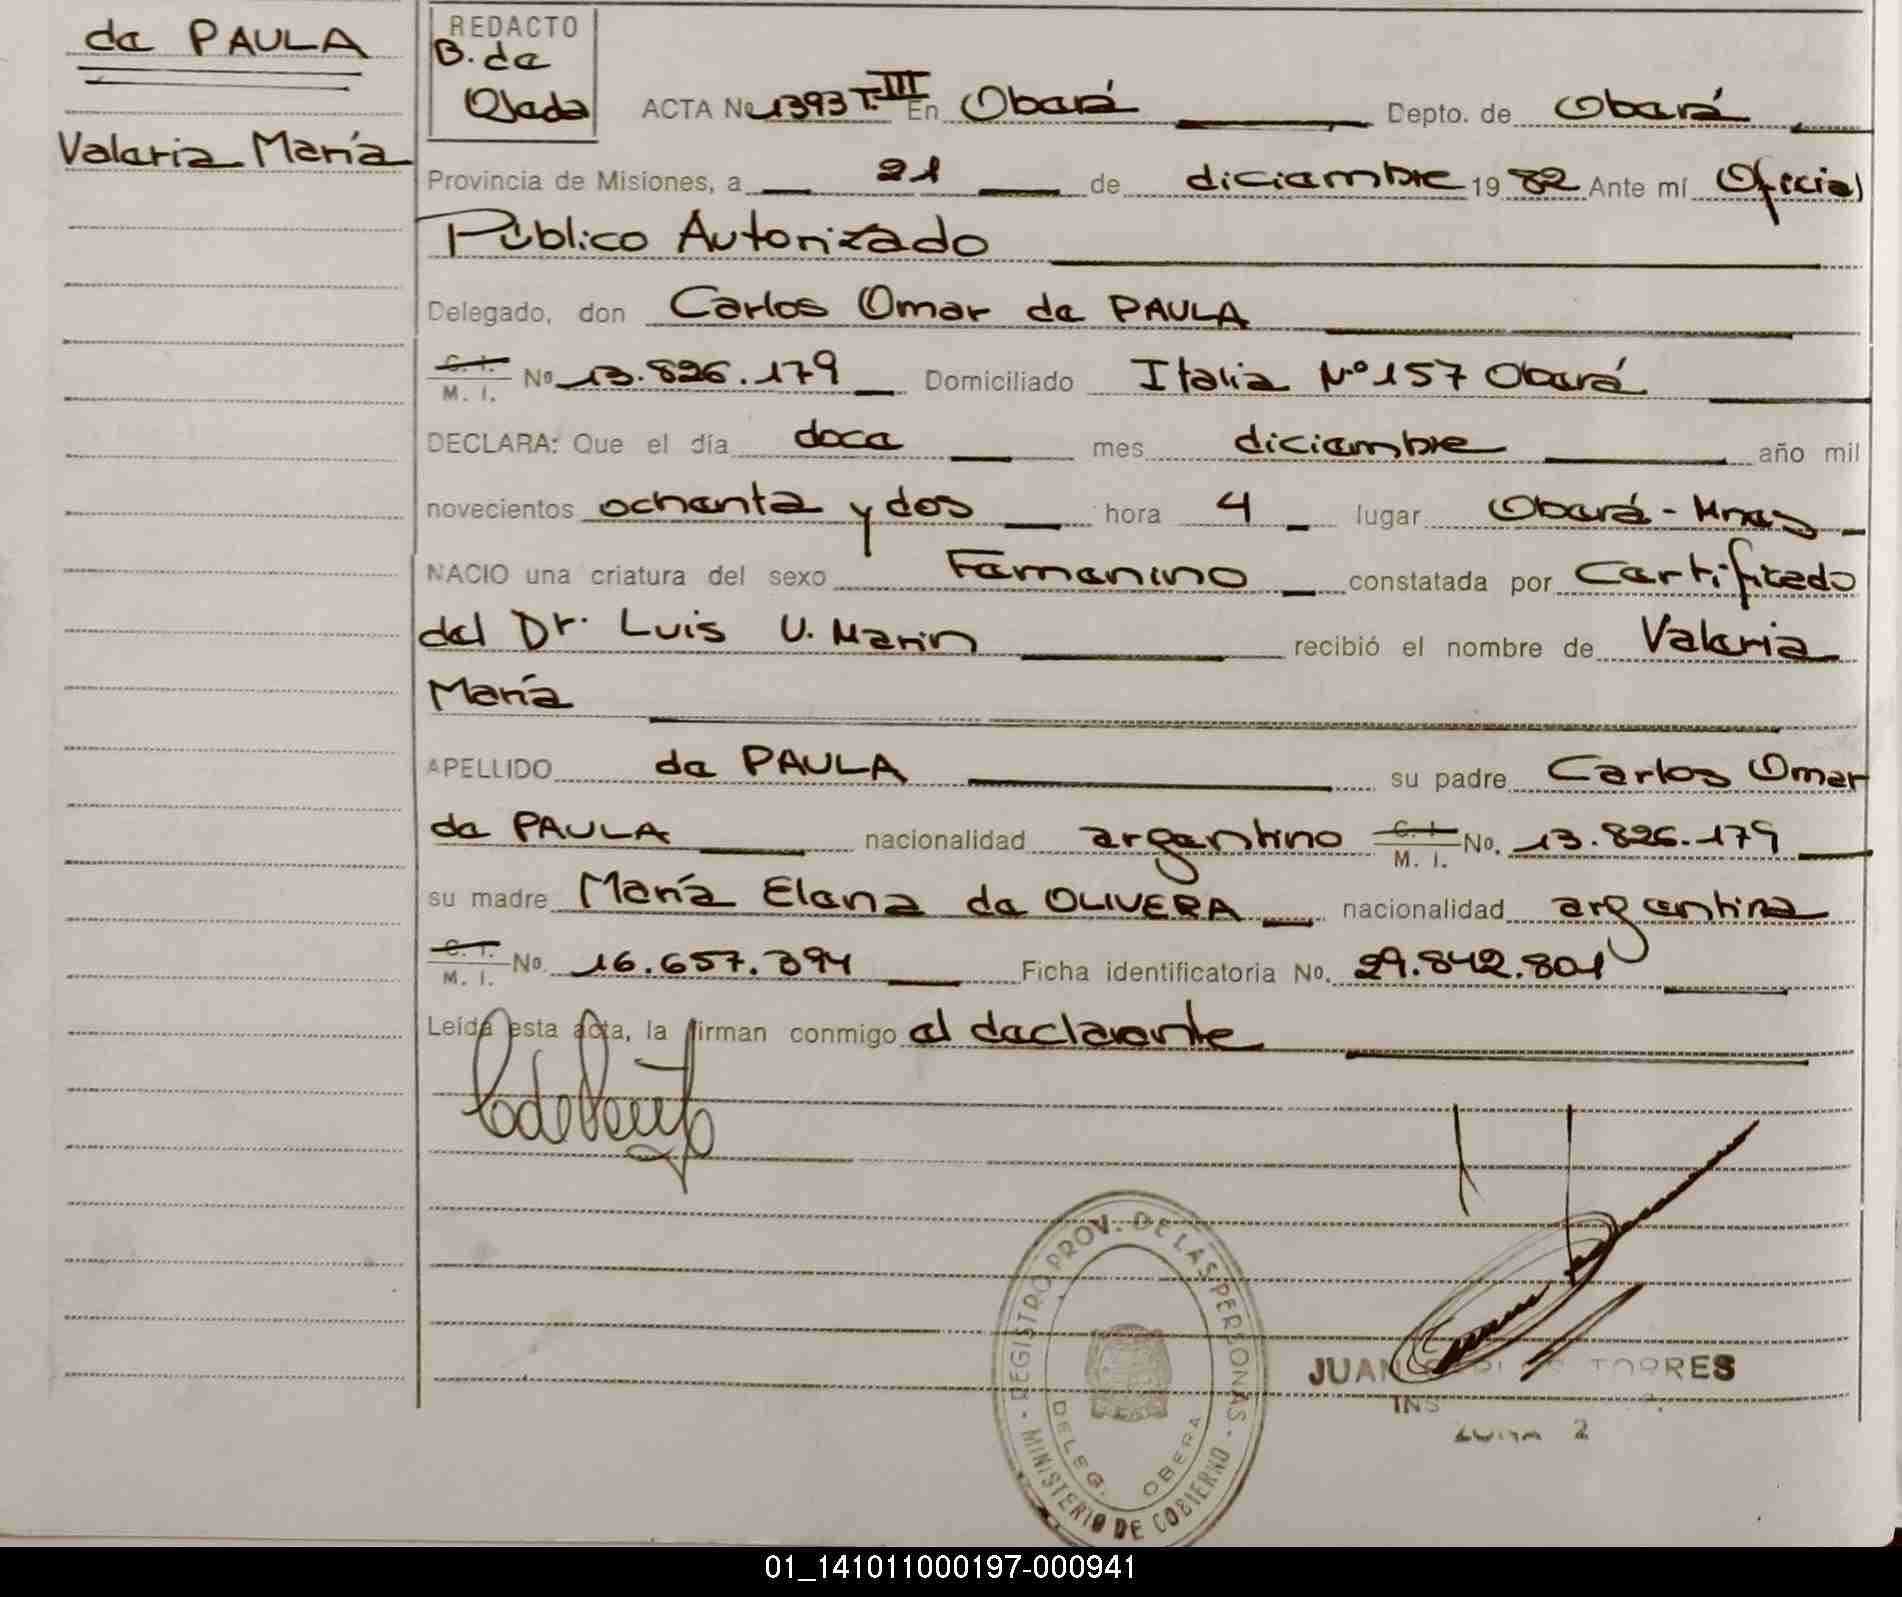 de PAULA
Valeria María
REDACTO
B. de
Ojeda
ACTA No 1393 T.III En Oberá Depto. de Oberá
Provincia de Misiones, a 21 de diciembre 19 82 Ante mí Oficial
Público Autorizado
Delegado, don Carlos Omar de PAULA
C. I. M. I. No 13.826.179 Domiciliado Italia Nº 157 Oberá
DECLARA: Que el día doce mes diciembre año mil
novecientos ochenta y dos hora 4 lugar Oberá - Mnes
NACIO una criatura del sexo Femenino constatada por Certificado
del Dr. Luis U. Marin recibió el nombre de Valeria
María
APELLIDO de PAULA su padre Carlos Omar
de PAULA nacionalidad argentino C. I. M. I. No. 13.826.179
su madre María Elena de OLIVERA nacionalidad argentina
C. I. M. I. No. 16.657.394 Ficha identificatoria No. 29.842.801
Leída esta acta, la firman conmigo el declarante
REGISTRO PROV. DE LAS PERSONAS - MINISTERIO DE GOBIERNO -
DELEG. OBERA
JUAN CARLOS TORRES
01_141011000197-000941